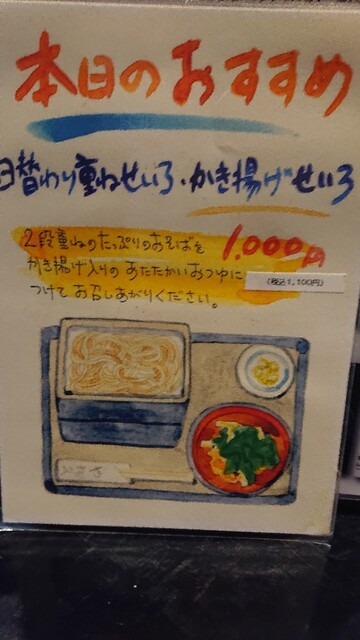 本日のおすすめ
日替わり重ねせいろ・かき揚げせいろ
2段重ねのたっぷりのおそばを
1,000円
かき揚げ入りのあたたかいおつゆに
(税込1,100円)
つけてお召しあがりください。